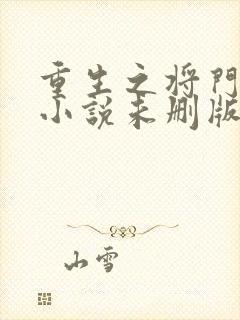 重生之将門
小说未删版
山雪